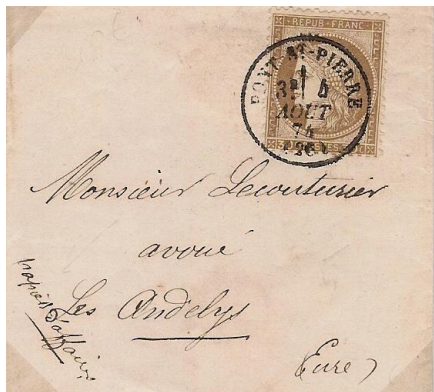 REPUB·FRANC
PONT-ST-PIERRE
3E
AOUT
74
(26)
Monsieur Lecouturier
avoué
Les Andelys
papiers d'affaires
Eure